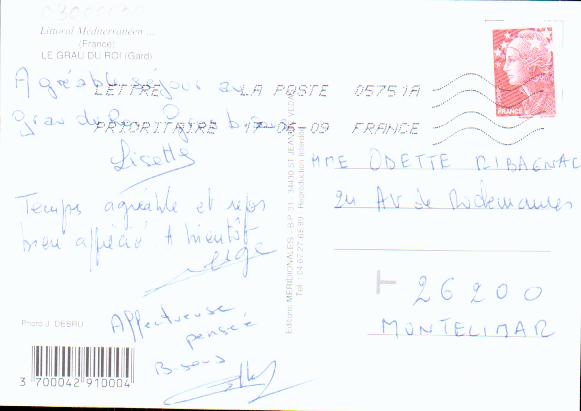 Littoral Méditerranéen ...
(France)
LE GRAU DU ROI (Gard)
Agréable séjour au
Grau du Roi Gros bisous
Lisette
Temps agréable et repos
bien apprécié A bientôt
Affectueuse
pensée
Bisous
Photo J. DEBRU
3 700042 910004
Editions MERIDIONALES - B.P. 31 - 34430 ST JEAN DE VEDAS
Tél. : 04.67.27.68.99 - Reproduction Interdite
LETTRE LA POSTE 05751A
PRIORITAIRE 17-06-09 FRANCE
FRANCE
MME ODETTE RIBAGNAC
24 AV de
26200
MONTELIMAR